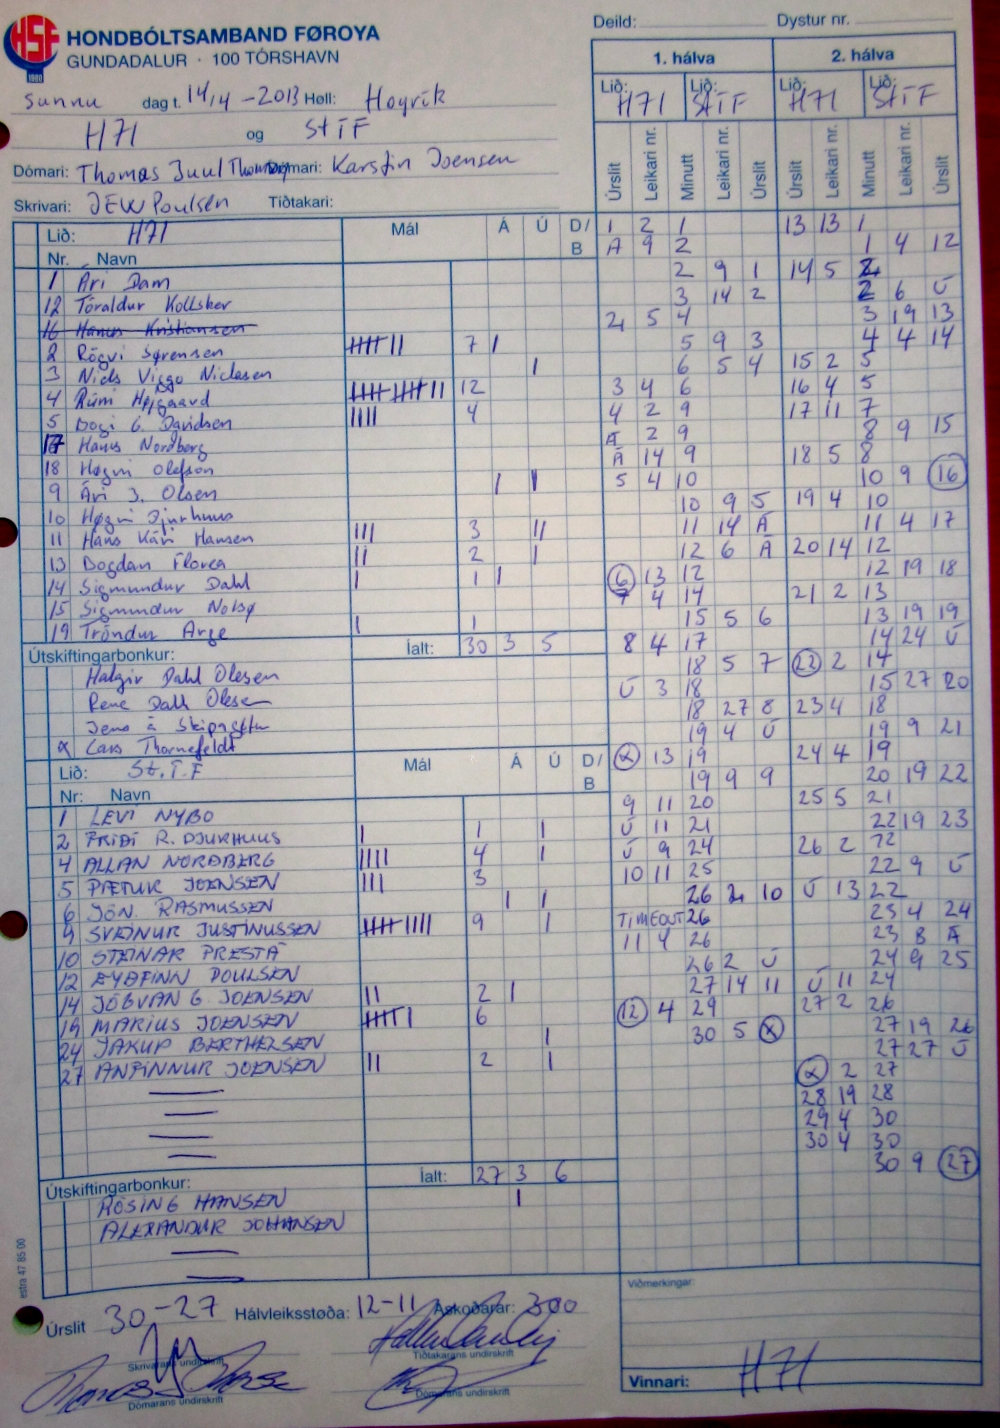 HSF
1980
HONDBÓLTSAMBAND FØROYA
GUNDADALUR · 100 TÓRSHAVN
Deild:
Dystur nr.
Sunnu dag t. 14/4-2013 Høll: Hoyvík
H71 og StÍF
Dómari: Thomas Juul Dómari: Karstin Joensen
Skrivari: JEW Poulsen Tíðtakari:
1. hálva 2. hálva
Lið: H71 Lið: StÍF Lið: H71 Lið: StÍF
Úrslit Leikari nr. Minutt Leikari nr. Úrslit Úrslit Leikari nr. Minutt Leikari nr. Úrslit
Lið: H71 Mál Á Ú D/B
Nr. Navn
1 Ári Dam
12 Tóraldur Kollsker
16 Hanus Kristiansen
2 Rógvi Sørensen 7
3 Niels Viggo Niclasen
4 Rúni Højgaard 12
5 Bogi G. Davidsen 4
17 Hanus Nordberg
18 Høgni Olefson
9 Ári J. Olsen
10 Høgni Djurhuus
11 Hans Kári Hansen 3
13 Bogdan Florea 2
14 Sigmundur Dahl 1
15 Sigmundur Nolsø
19 Tróndur Arge 1
Ílalt: 30 3 5
Útskiftingarbonkur:
Halgir Dahl Olesen
Rene Dahl Olesen
Jens á
Lars Thornefeldt
Lið: St.Í.F Mál Á Ú D/B
Nr: Navn
1 LEVI NYBO
2 FRÍÐI R. DJURHUUS 1
4 ALLAN NORÐBERG 4
5 PÆTUR JOENSEN 3
6 JÓN. RASMUSSEN
9 SVEINUR JUSTINUSSEN 9
10 STEINAR PRESTÁ
12 EYÐFINN POULSEN
14 JÓGVAN G JOENSEN 2
19 MARIUS JOENSEN 6
24 JÁKUP BERTHELSEN
27 ANFINNUR JOENSEN 2
Ílalt: 27 3 6
Útskiftingarbonkur:
RÓSING HANSEN
ALEXANDUR JOHANSEN
1 2 1
Á 9 2
2 9 1
3 14 2
2 5 4
5 9 3
6 5 4
3 4 6
4 2 9
Á 2 9
Á 14 9
5 4 10
10 9 5
11 14 Á
12 6 Á
6 13 12
7 4 14
15 5 6
8 4 17
18 5 7
Ú 3 18
18 27 8
19 4 Ú
13 19
19 9 9
9 11 20
Ú 11 21
Ú 9 24
10 11 25
26 2 10
TIMEOUT 26
11 4 26
26 2 Ú
27 14 11
12 4 29
30 5
13 13 1
1 4 12
14 5 2
2 6 Ú
3 19 13
4 4 14
15 2 5
16 4 5
17 11 7
8 9 15
18 5 8
10 9 16
19 4 10
11 4 17
20 14 12
12 19 18
21 2 13
13 19 19
14 24 Ú
22 2 14
15 27 20
23 4 18
19 9 21
24 4 19
20 19 22
25 5 21
22 19 23
26 2 22
22 9 Ú
Ú 13 22
23 4 24
23 8 Á
24 9 25
Ú 11 24
27 2 26
27 19 26
27 27 Ú
2 27
28 19 28
29 4 30
30 4 30
30 9 27
Viðmerkingar:
Úrslit 30-27 Hálvleiksstøða: 12-11 Áskoðarar: 300
Skrivarans undirskrift
Tíðtakarans undirskrift
Dómarans undirskrift
Dómarans undirskrift
Vinnari: H71
estra 47 85 00